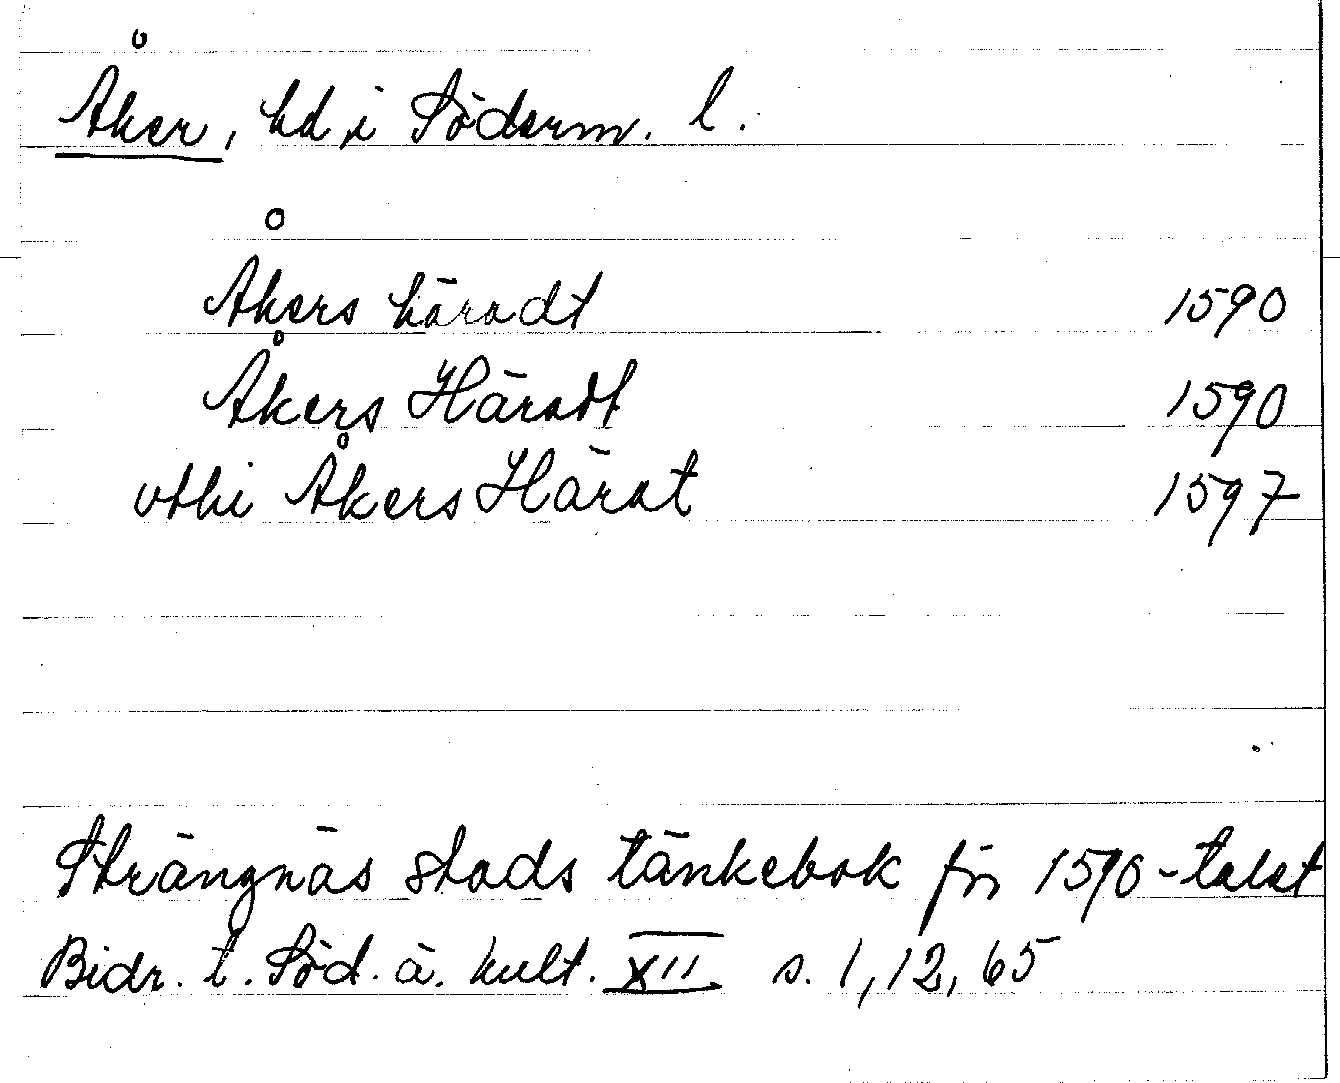 Åker, hd i Söderm. l.
Åkers häradt 1590
Åkers Häradt 1590
vthi Åkers Härat 1597
Strängnäs stads tänkebok för 1590-talet
Bidr. t. Söd. ä. kult. XII s. 1, 12, 65